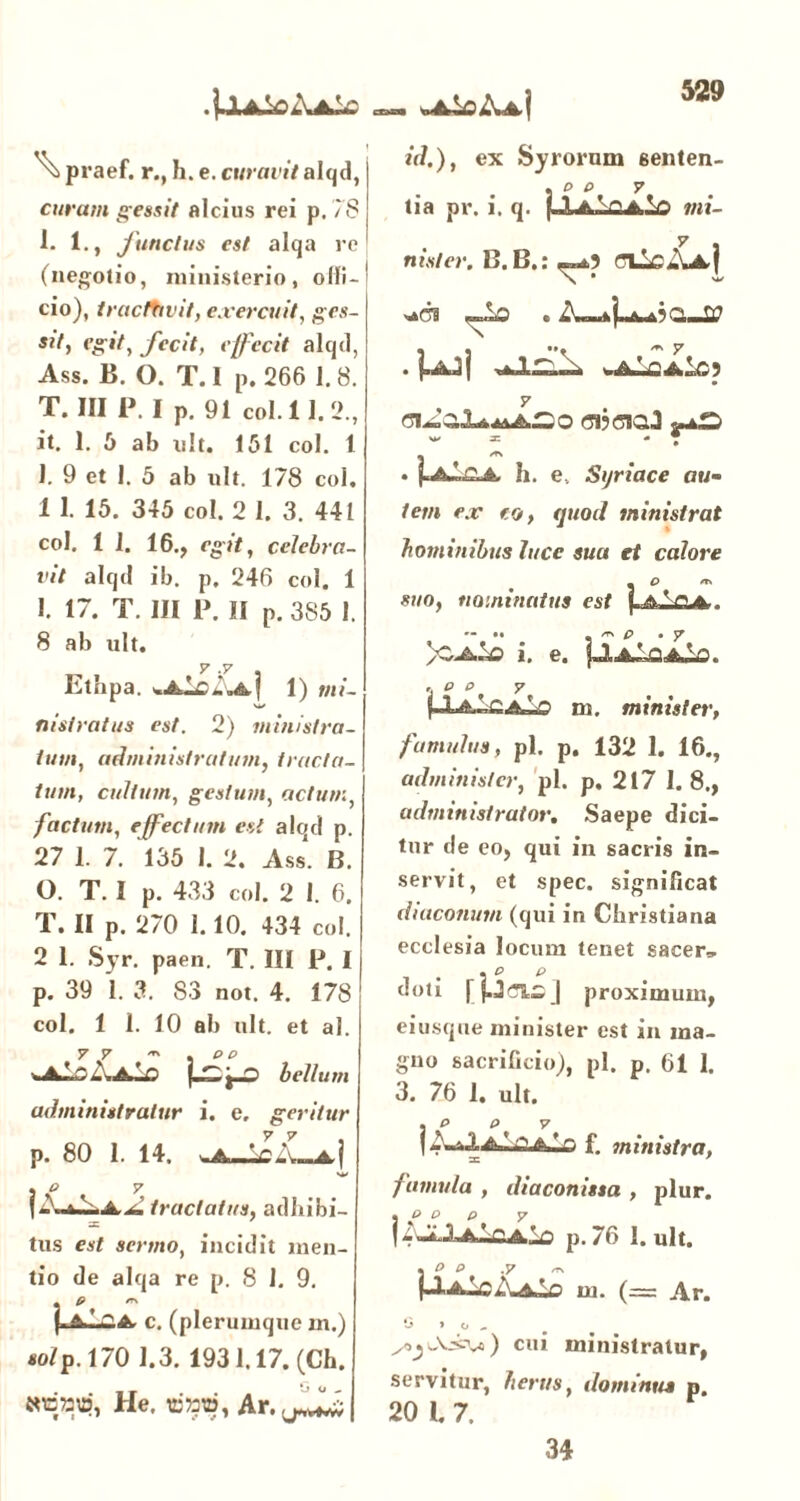 ܡܫܬܡܫܢܐ. — ܐܫܬܡܫ
529
ܠ praef. r., h. e. curavit alqd,
curam gessit alcius rei p. 78
l. 1., functus est alqa re
(negotio, ministerio, offi-
cio), tractavit, exercuit, ges-
sit, egit, fecit, effecit alqd,
Ass. B. O. T. I p. 266 l. 8.
T. III P. I p. 91 col. 1 l. 2.,
it. l. 5 ab ult. 151 col. 1
l. 9 et l. 5 ab ult. 178 col.
1 l. 15. 345 col. 2 l. 3. 441
col. 1 l. 16., egit, celebra-
vit alqd ib. p. 246 col. 1
l. 17. T. III P. II p. 385 l.
8 ab ult.
Ethpa. ܐܫܬܡܫ 1) mi-
nistratus est. 2) ministra-
tum, administratum, tracta-
tum, cultum, gestum, actum,
factum, effectum est alqd p.
27 l. 7. 135 l. 2. Ass. B.
O. T. I p. 433 col. 2 l. 6.
T. II p. 270 l. 10. 434 col.
2 l. Syr. paen. T. III P. I
p. 39 l. 3. 83 not. 4. 178
col. 1 l. 10 ab ult. et al.
ܡܫܬܡܫ ܩܪܒܐ bellum
administratur i. e. geritur
p. 80 l. 14. ܐܫܬܡܫ
ܬܫܥܝܬܐ tractatus, adhibi-
tus est sermo, incidit men-
tio de alqa re p. 8 l. 9.
ܫܡܫܐ c. (plerumque m.)
sol p. 170 l. 3. 193 l. 17. (Ch.
שִׁמְשָׁא, He. שֶׁמֶשׁ, Ar. شَمْسٌ
id.), ex Syrorum senten-
tia pr. i. q. ܡܫܡܫܢܐ mi-
nister. B. B.: ܐܫܬܡܗ ܕܝܢ
ܣܘܪܝܐܝܬ . ܡܢ ܗܝ
ܕܡܫܡܫ ܠܒܢܝ ܐܢܫܐ .
ܒܝܕ ܢܘܗܪܗ ܘܚܡܝܡܘܬܗ
ܫܡܫܐ . h. e. Syriace au-
tem ex eo, quod ministrat
hominibus luce sua et calore
suo, nominatus est ܫܡܫܐ.
ܡܫܡ i. e. ܡܫܡܫܢܐ.
ܡܫܡܫܢܐ m. minister,
famulus, pl. p. 132 l. 16.,
administer, pl. p. 217 l. 8.,
administrator. Saepe dici-
tur de eo, qui in sacris in-
servit, et spec. significat
diaconum (qui in Christiana
ecclesia locum tenet sacer-
doti [ܟܗܢܐ] proximum,
eiusque minister est in ma-
gno sacrificio), pl. p. 61 l.
3. 76 l. ult.
ܡܫܡܫܢܝܬܐ f. ministra,
famula , diaconissa , plur.
ܡܫܡܫܢܝܬܐ p. 76 l. ult.
ܡܫܬܡܫܢܐ m. (= Ar.
مَخْدُومٌ) cui ministratur,
servitur, herus, dominus p.
20 l. 7.
34